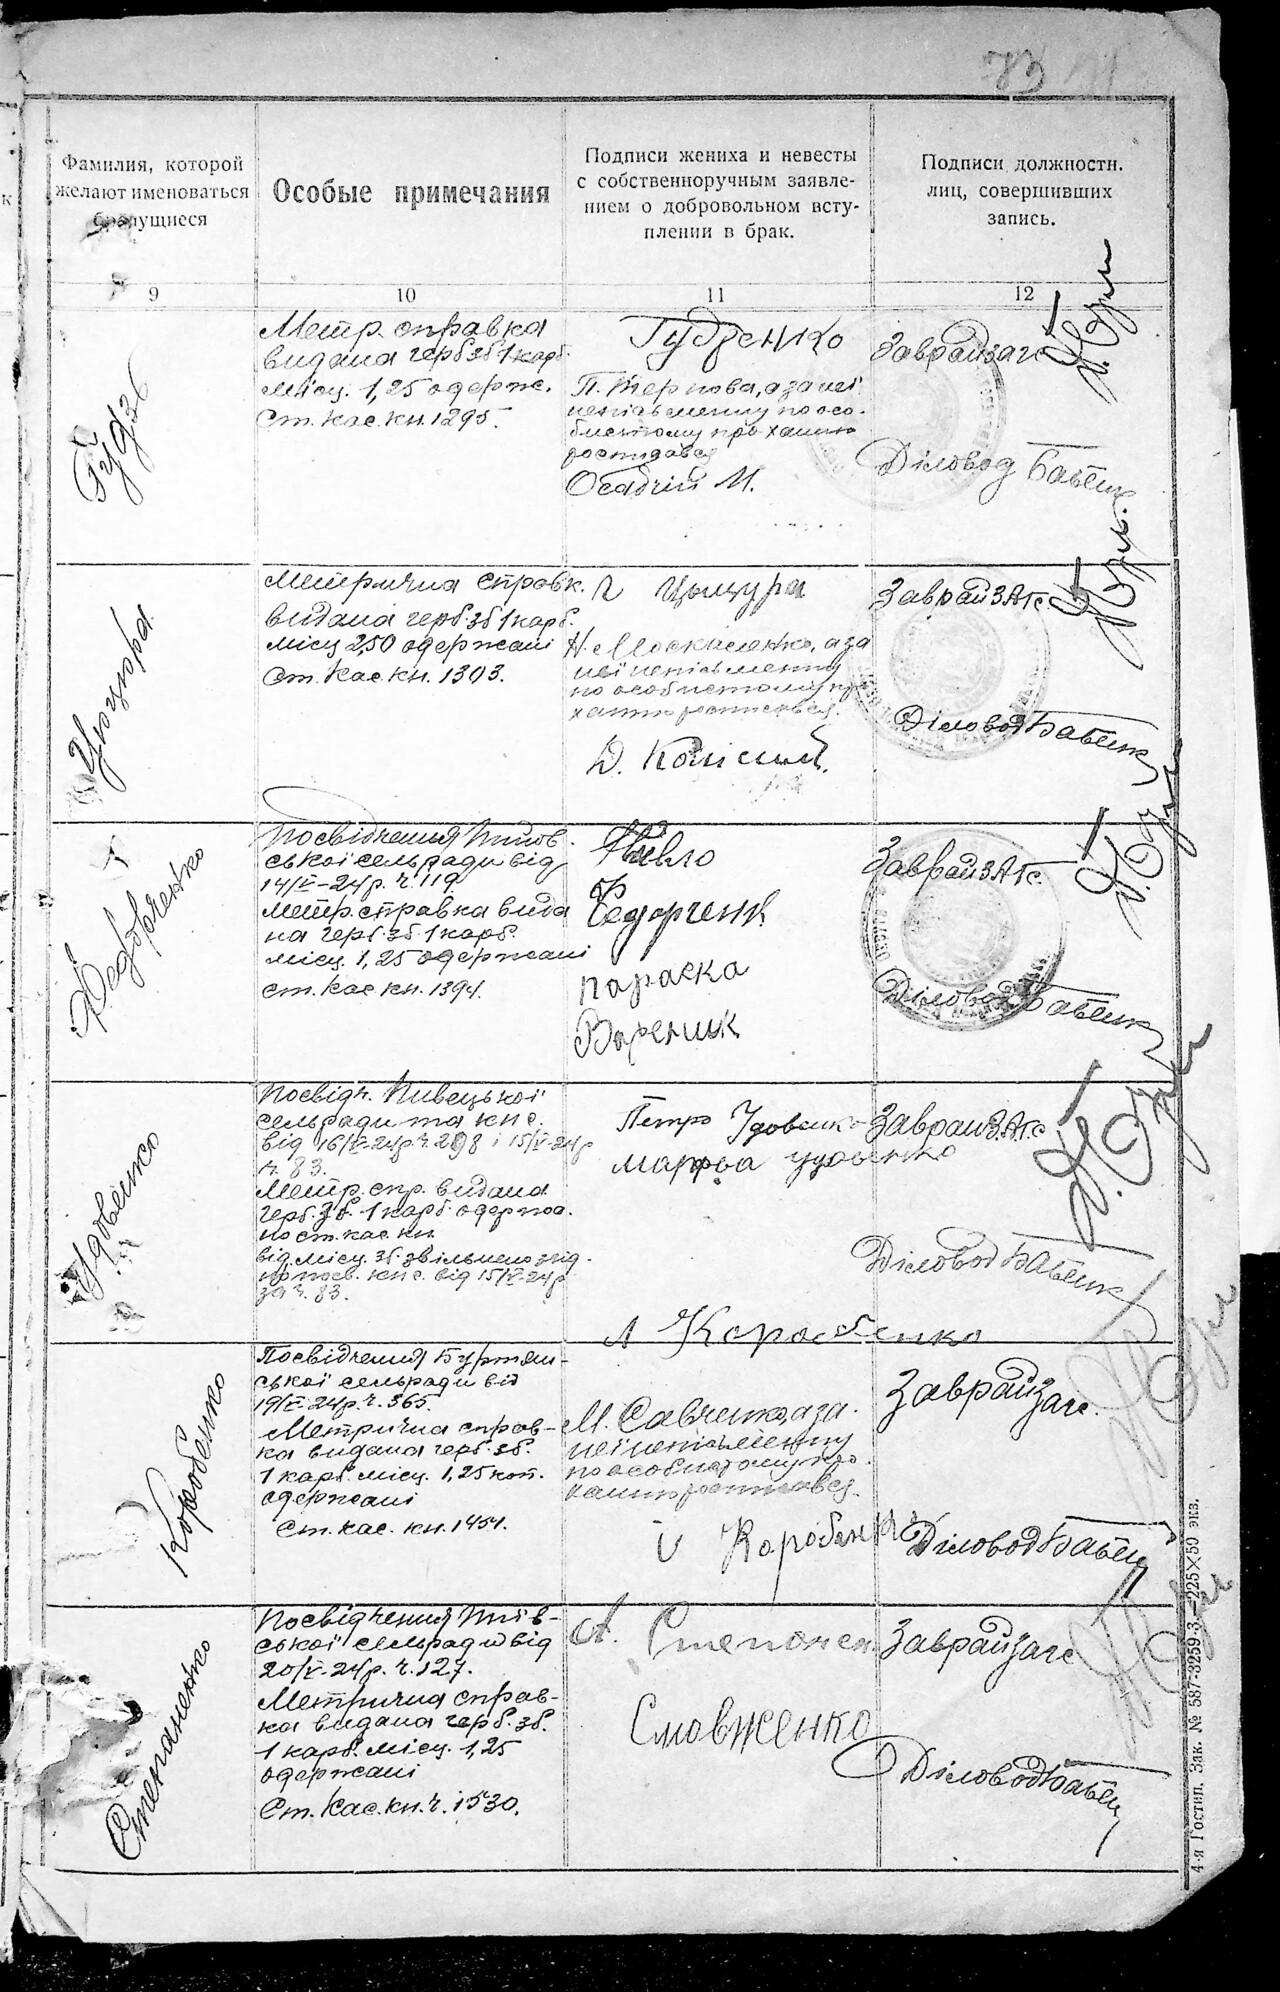 73
Фамилия, которой
желают именоваться
брачущиеся
Особые примечания
Подписи жениха и невесты
с собственноручным заявле-
нием о добровольном всту-
плении в брак.
Подписи должностн.
лиц, совершивших
запись.
9
10
11
12
Метр. справка
видана герб зб 1 карб.
місц. 1,25 одерж.
Ст. кас. кн. 1295.
П. Тернова, а за неї
неписьменну по осо-
бистому проханню
росписався
Осадчий М.
Заврайзагс
Діловод Бабенк
Цюцюра
Метрична справк.
видана герб. зб 1 карб.
місц 2,50 одержані
Ст. Кас. кн. 1303.
Н. Москаленко, а за
неї неписьменну
по особистому про
ханню росписався.
Заврай ЗАГС
Діловод Бабенк
Федорченко
Посвідчення
ської сельради від
14/V-24р. ч. 119.
Метр. справка вида
на герб. зб. 1 карб.
місц. 1,25 одержані
ст. кас кн. 1394.
Павло
Федорченк
Параска
Вареник
Заврай ЗАГС.
Діловод Бабенк
Удовенко
Посвідч. Пивецької
сельради та кнс.
від 16/V-24р ч. 298 і 15/V-24р
ч. 83.
Метр. спр. видана
герб. зб. 1 карб. одержа.
но ст. кас. кн
від місц. зб. звільнено згід-
но посв. кнс. від 15/V-24р
за ч. 83.
Петро Удовенко
Марфа Удовенко
Заврай ЗАГС
Діловод Бабенк
Коробенко
Посвідчення Буртян-
ської сельради від
19/V-24р. ч. 365.
Метрична справ-
ка видана герб. зб.
1 карб. місц. 1,25 коп.
одержані
Ст. кас. кн. 1454.
А Коробенко
М. Савченко, а за
неї неписьменну
по особистому про-
ханню росписався.
і Коробенко
Заврайзагс.
Діловод Бабенк
Степаненко
Посвідчення
ської сельради від
20/V-24р. ч. 127.
Метрична справ-
ка видана герб. зб.
1 карб. місц. 1,25
одержані
Ст. Кас. кн. ч. 1530.
А. Степонен
Смовженко
Заврайзагс
Діловод Бабенк
4-я Гостип. Зак. № 587-3259-3.—225×50 экз.